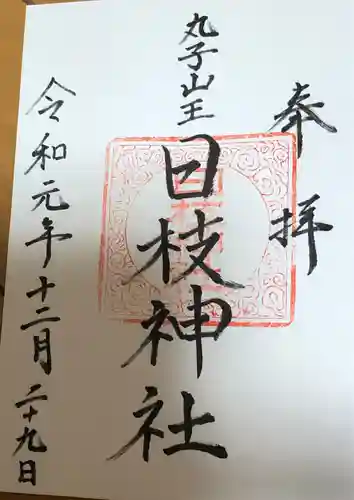 奉拝
丸子山王
日枝神社
令和元年十二月二十九日